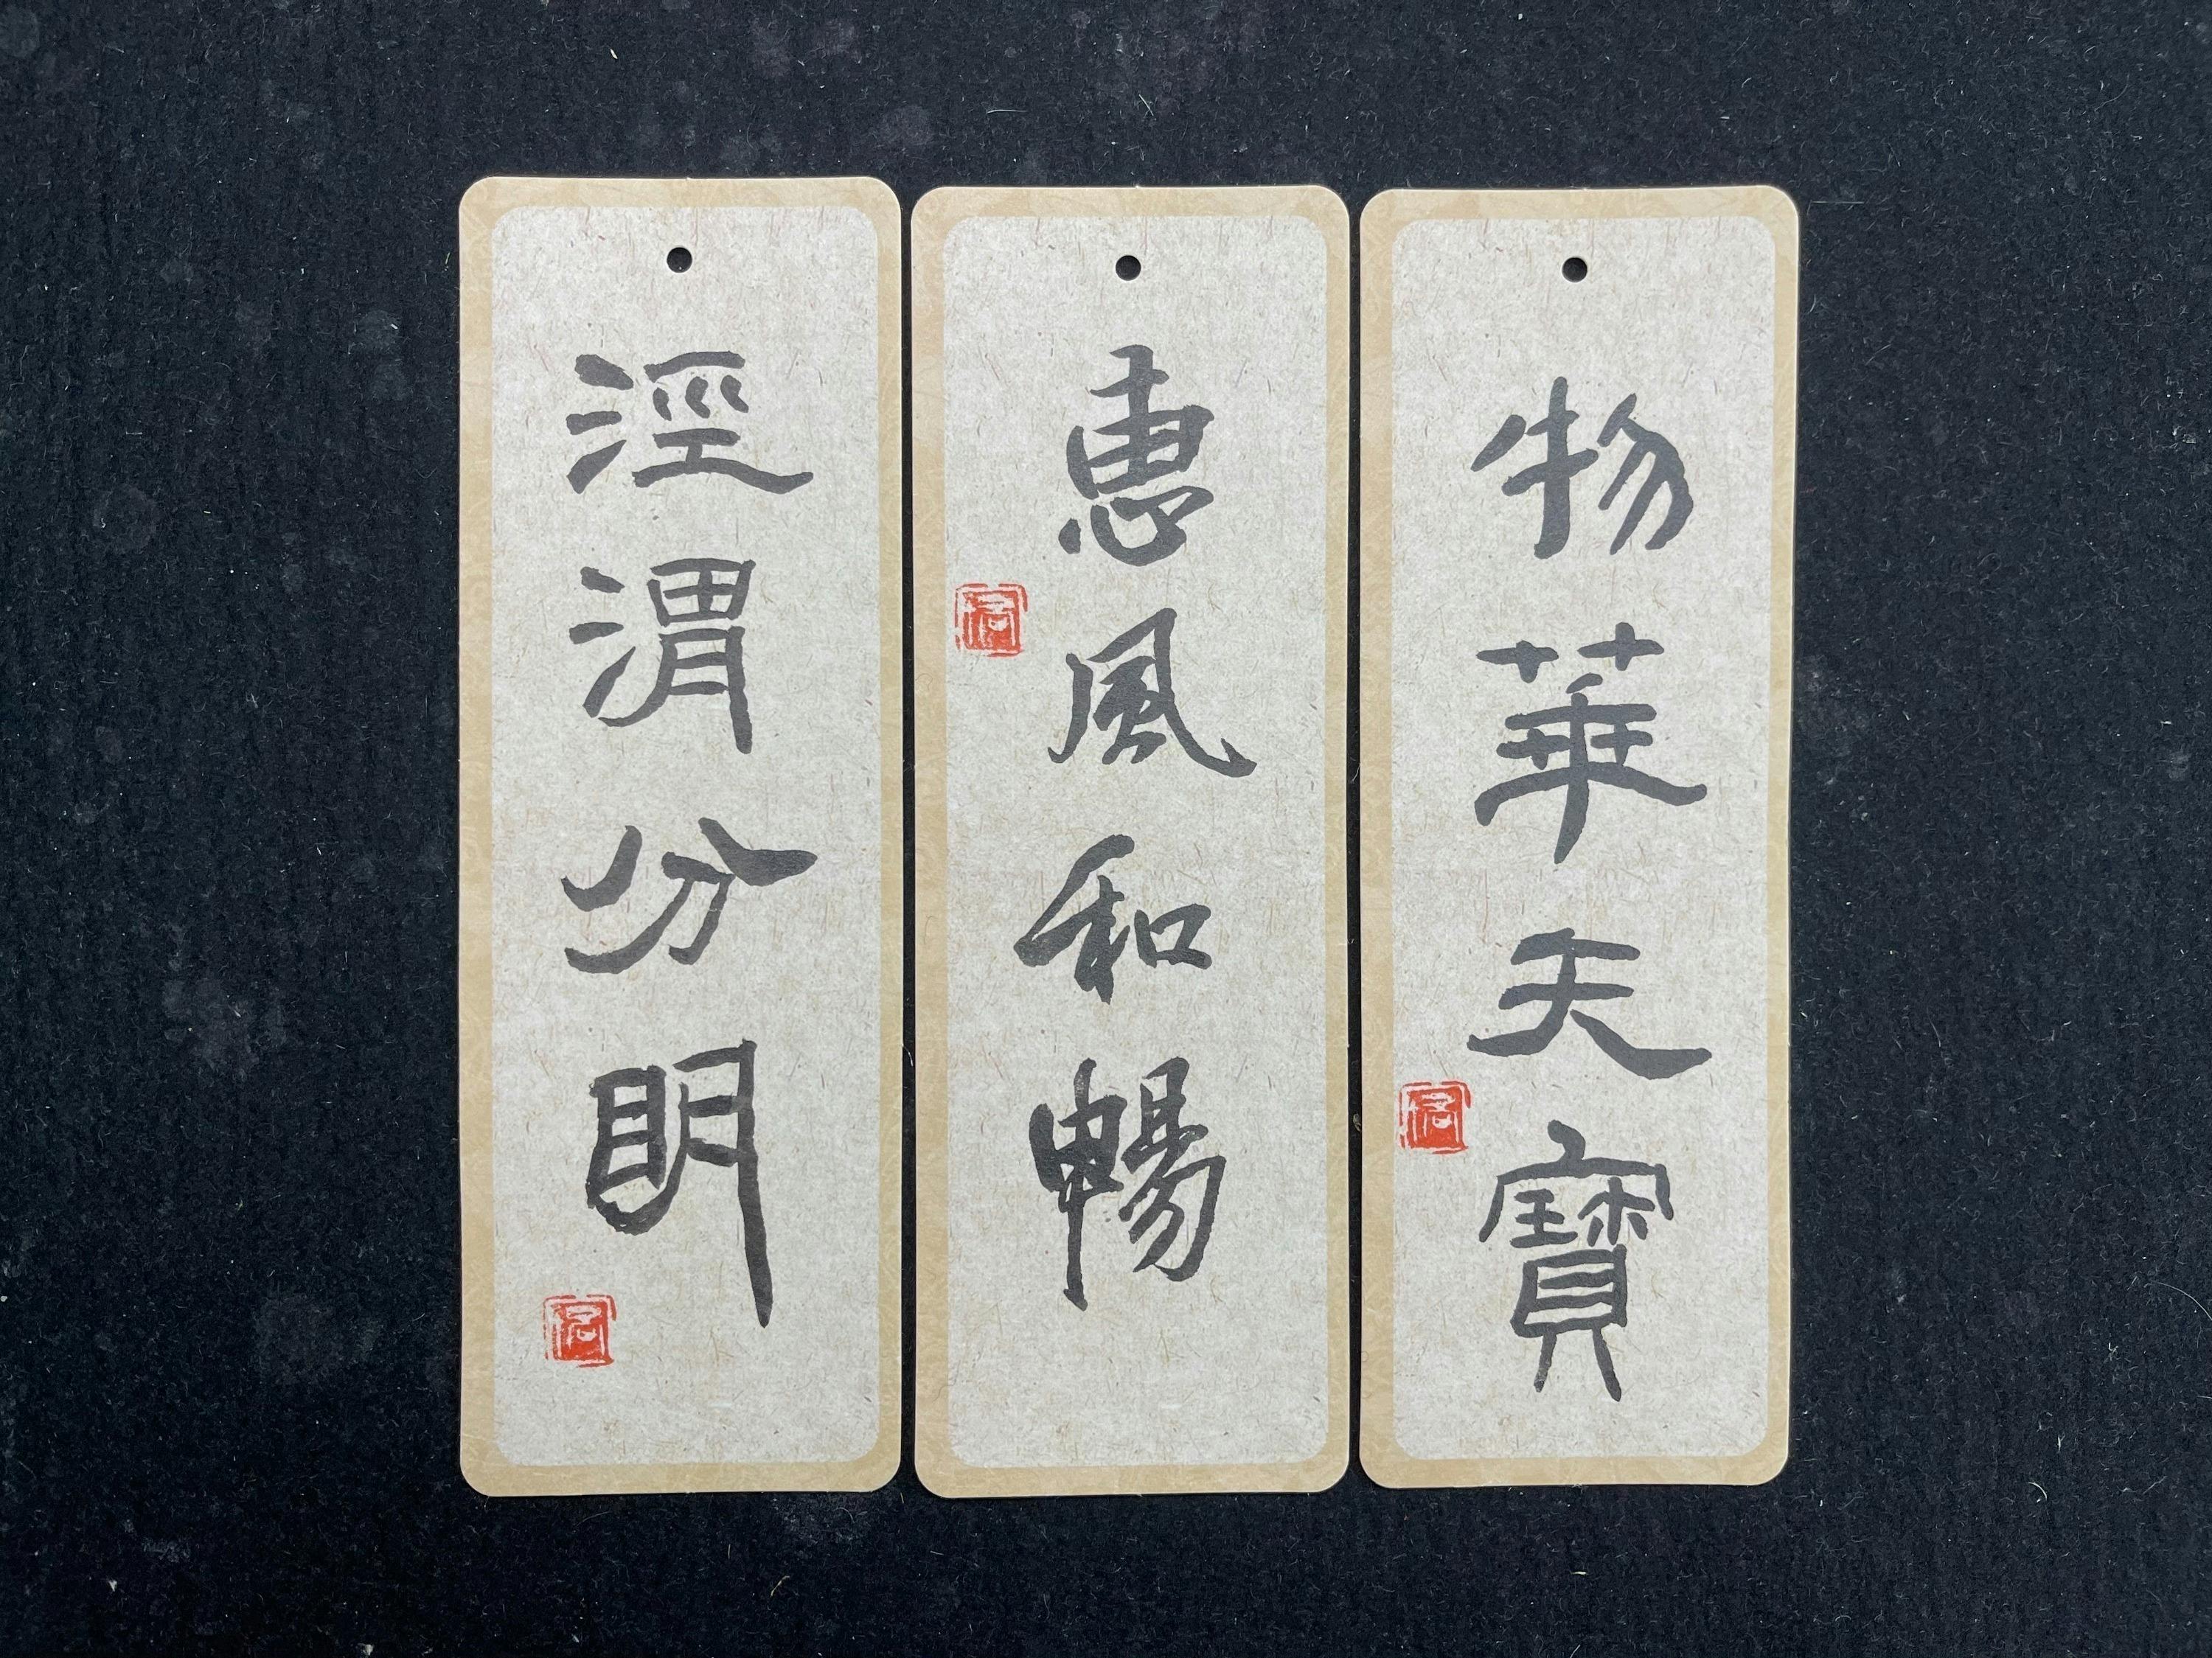 物華天寶
惠風和暢
涇渭分明